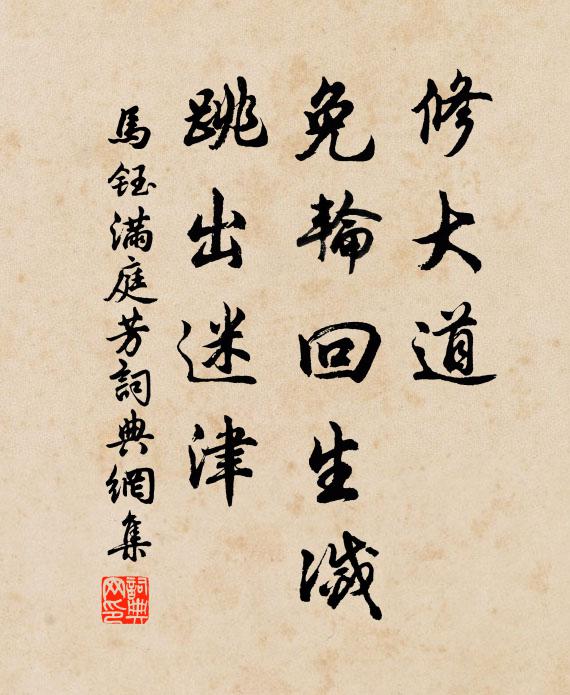 修大道
免輪回生滅
跳出迷津
馬鈺滿庭芳詞典網集
詞典網印